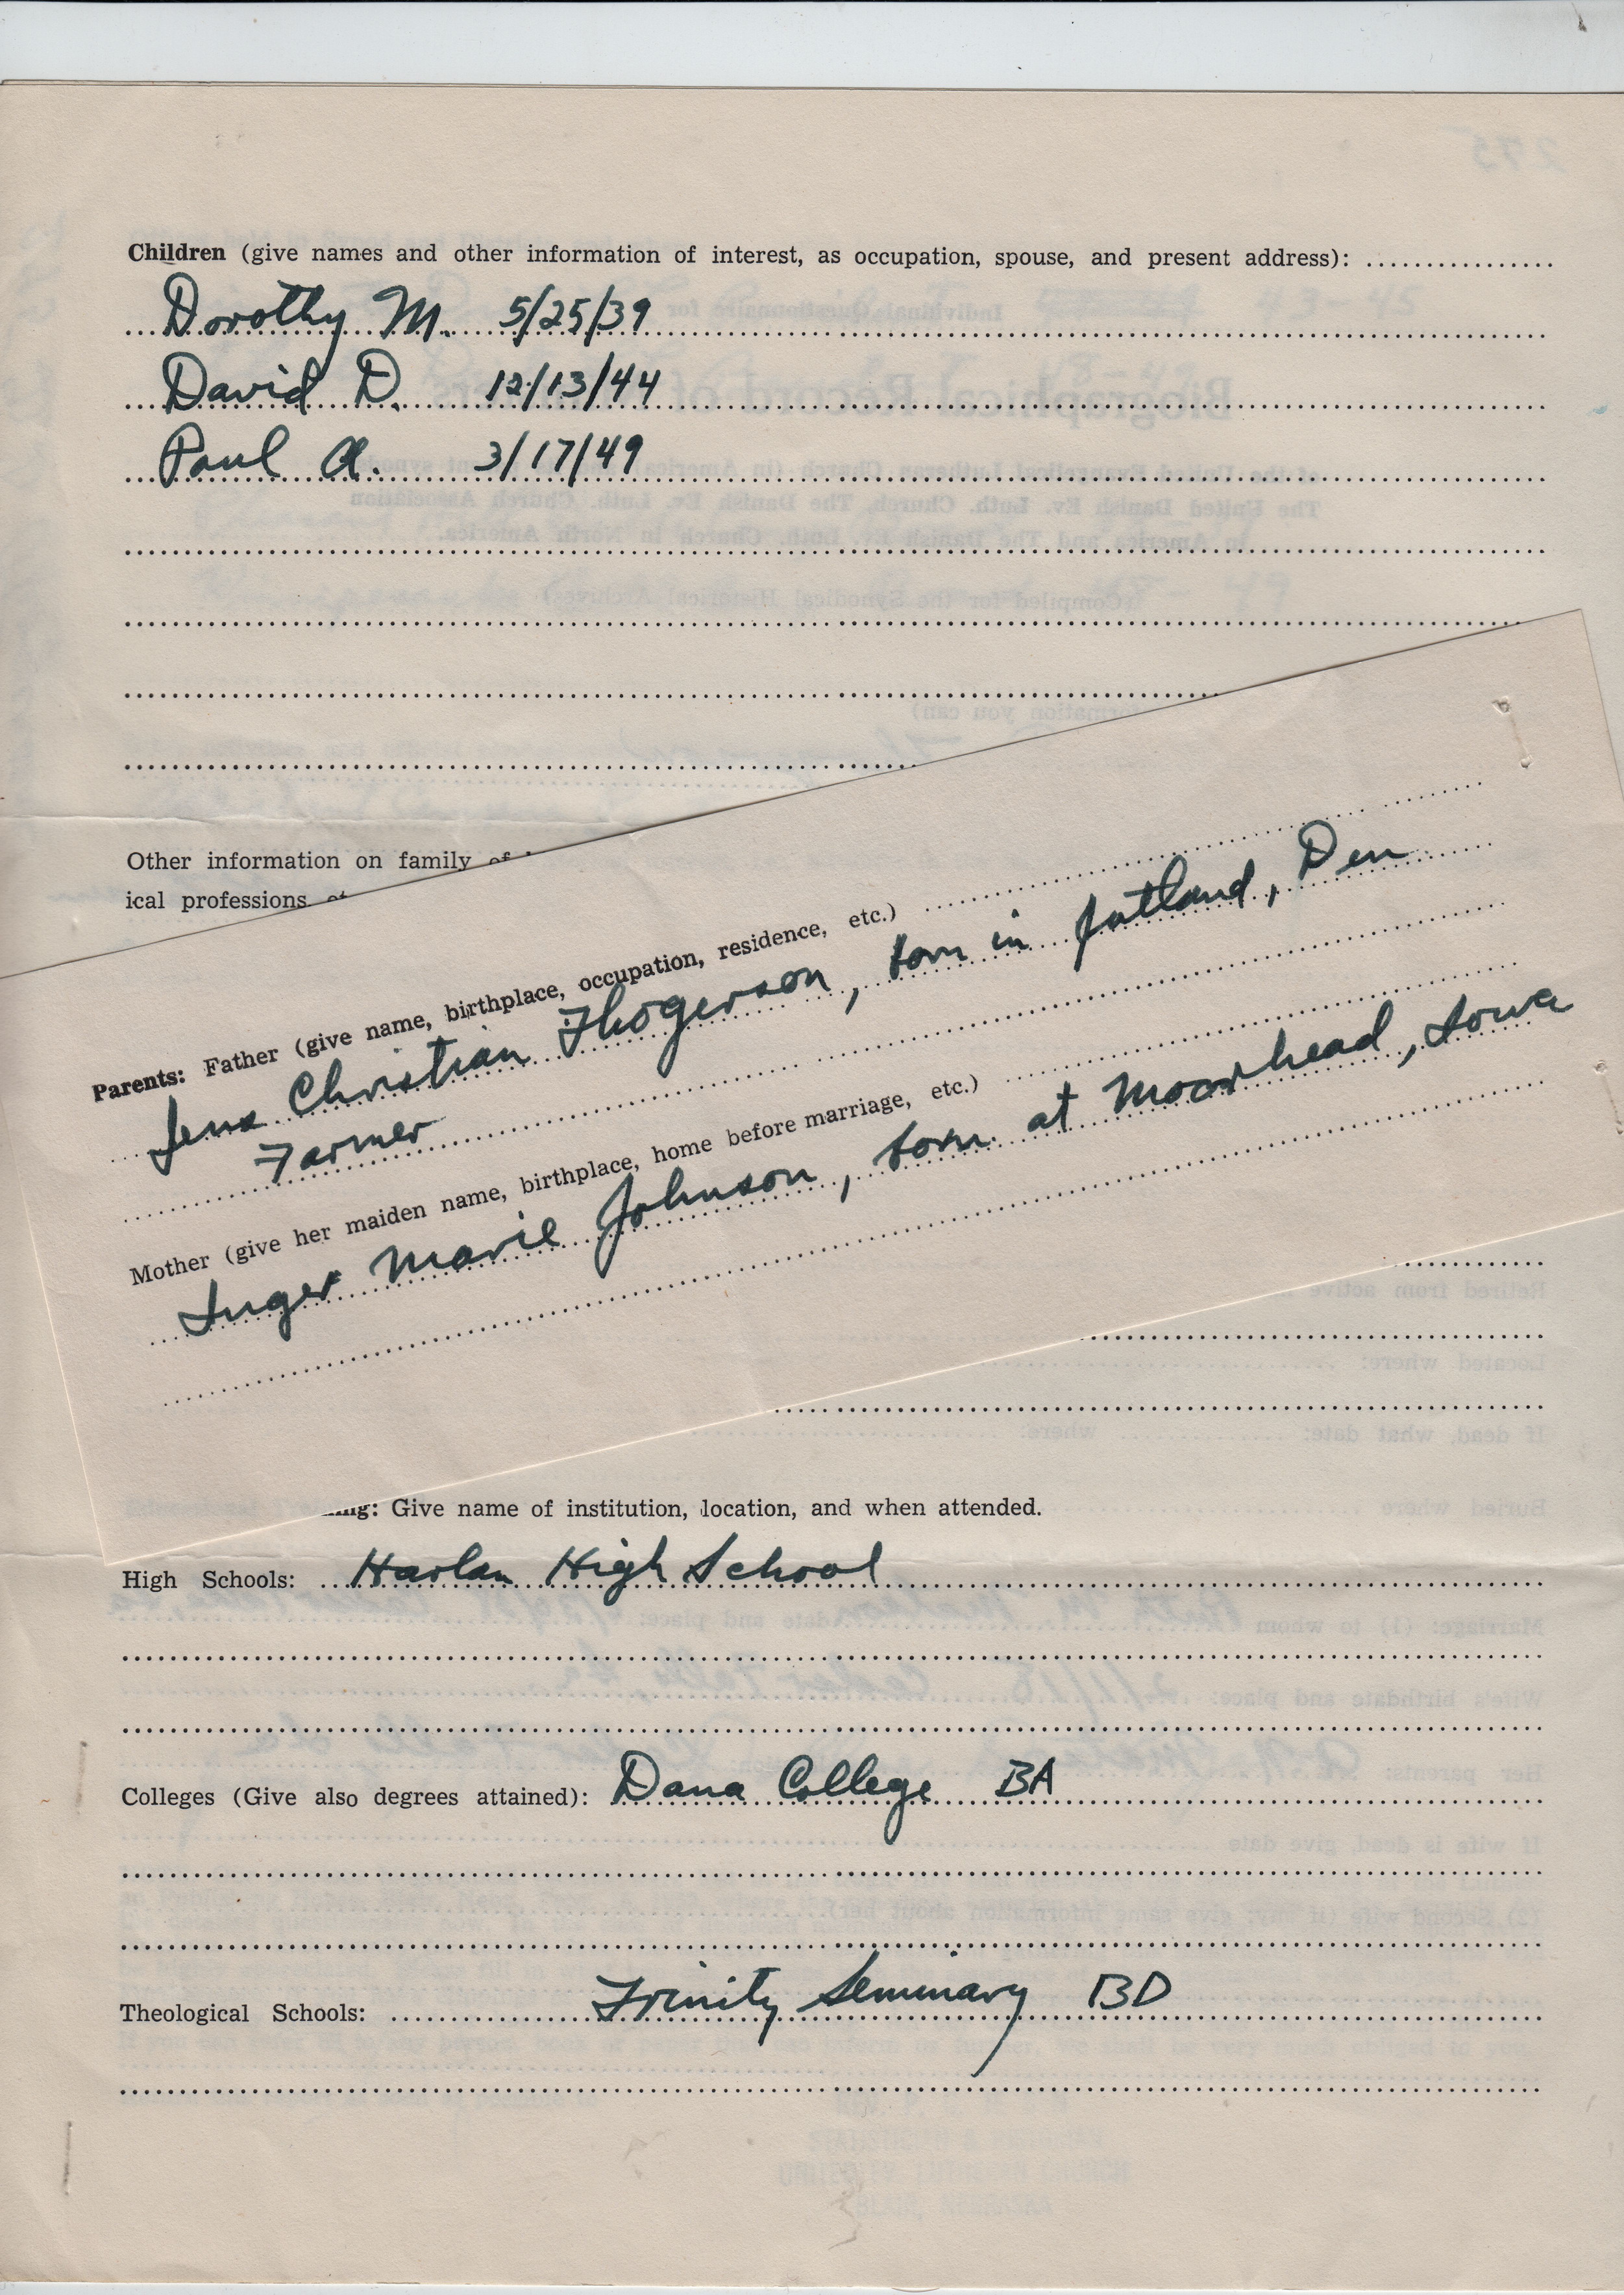 Children (give names and other information of interest, as occupation, spouse, and present address):
Dorothy M. 5/25/39
David D. 12/13/44
Paul A. 3/17/49
Other information on family of
ical professions
Parents: Father (give name, birthplace, occupation, residence, etc.)
Jens Christian Thogerson, born in Jutland, Den
Farmer
Mother (give her maiden name, birthplace, home before marriage, etc.)
Inger Marie Johnson, born at Moorhead, Iowa
Give name of institution, location, and when attended.
High Schools: Harlan High School
Colleges (Give also degrees attained): Dana College BA
Theological Schools: Trinity Seminary BD